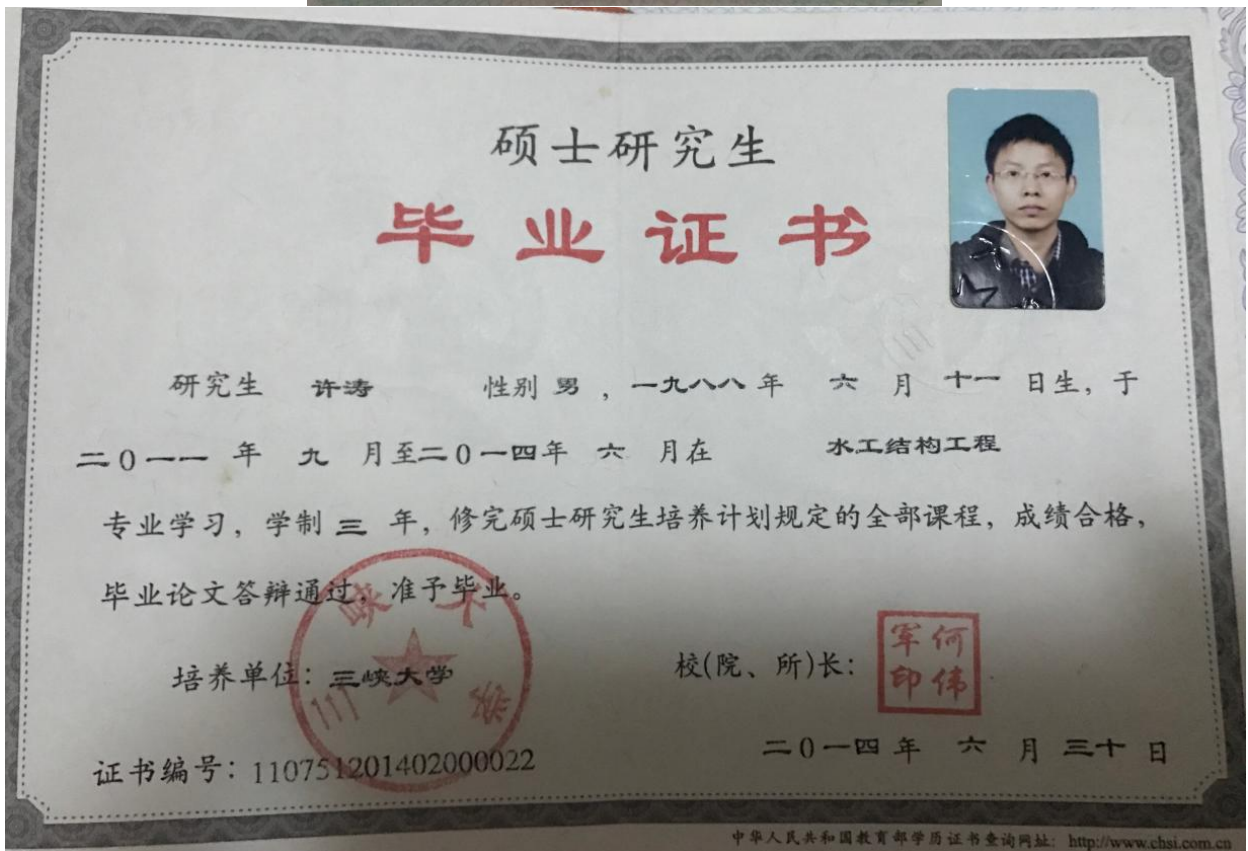 硕士研究生
毕业证书
研究生 许涛 性别 男 ，一九八八年 六 月 十一 日生，于
二0一一 年 九 月至二0一四年 六 月在 水工结构工程
专业学习，学制 三 年，修完硕士研究生培养计划规定的全部课程，成绩合格，
毕业论文答辩通过，准予毕业。
培养单位：三峡大学
三峡大学
校(院、所)长：
何伟军印
二0一四年 六 月 三十 日
证书编号：110751201402000022
中华人民共和国教育部学历证书查询网址：http://www.chsi.com.cn